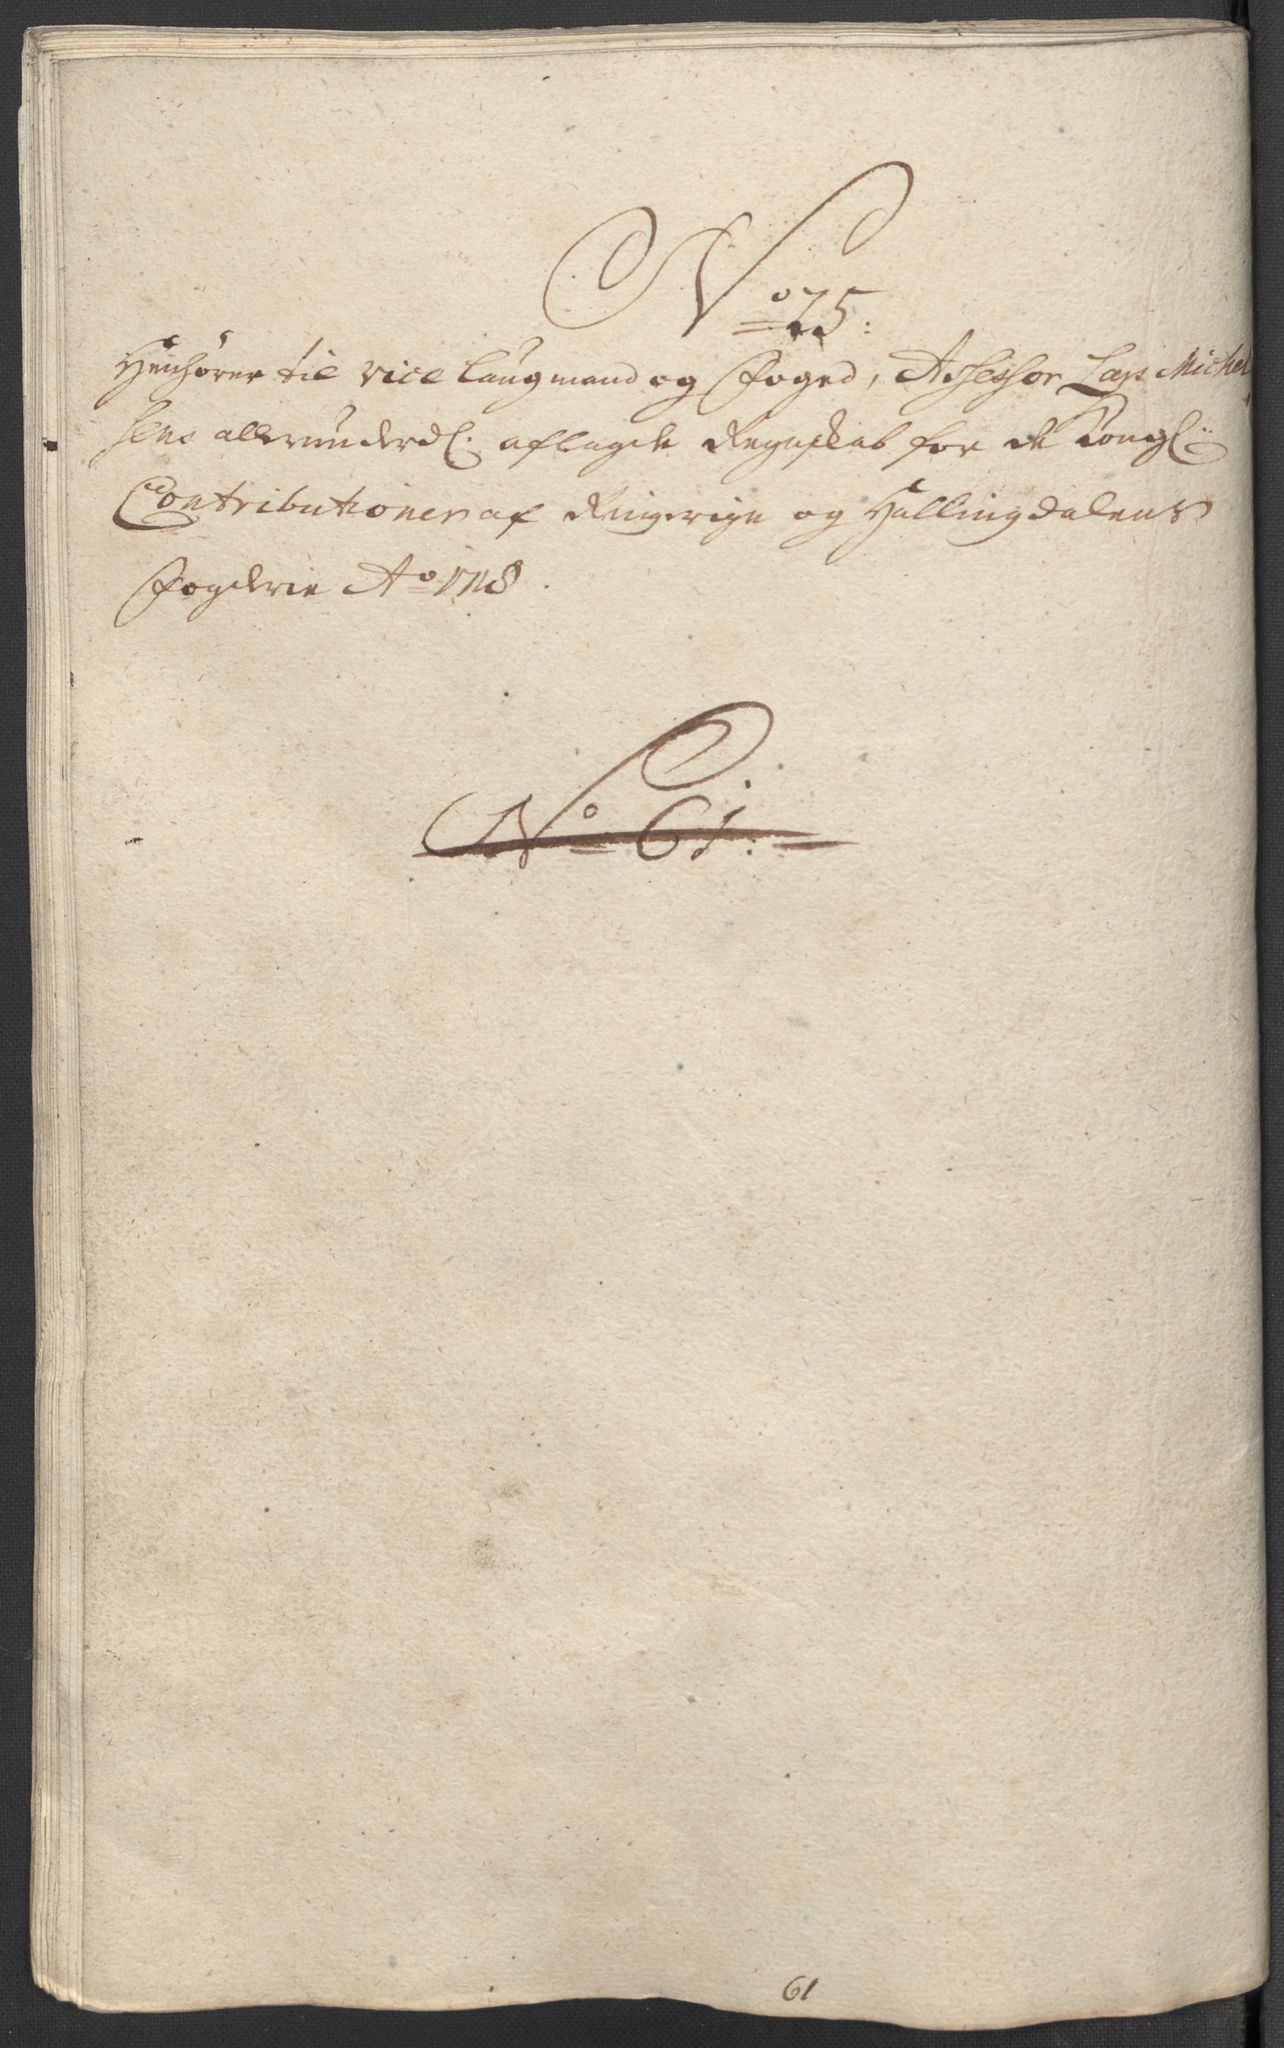 No 25:
Henhører til vice Laugmand og Foged, Assessor Lars Michel
sens allerunderdl. aflagde Regnskab for de Kongl:
Contributioner af Ringerige og Hallingdalens
Fogderie Ao 1718.
No 61:
61